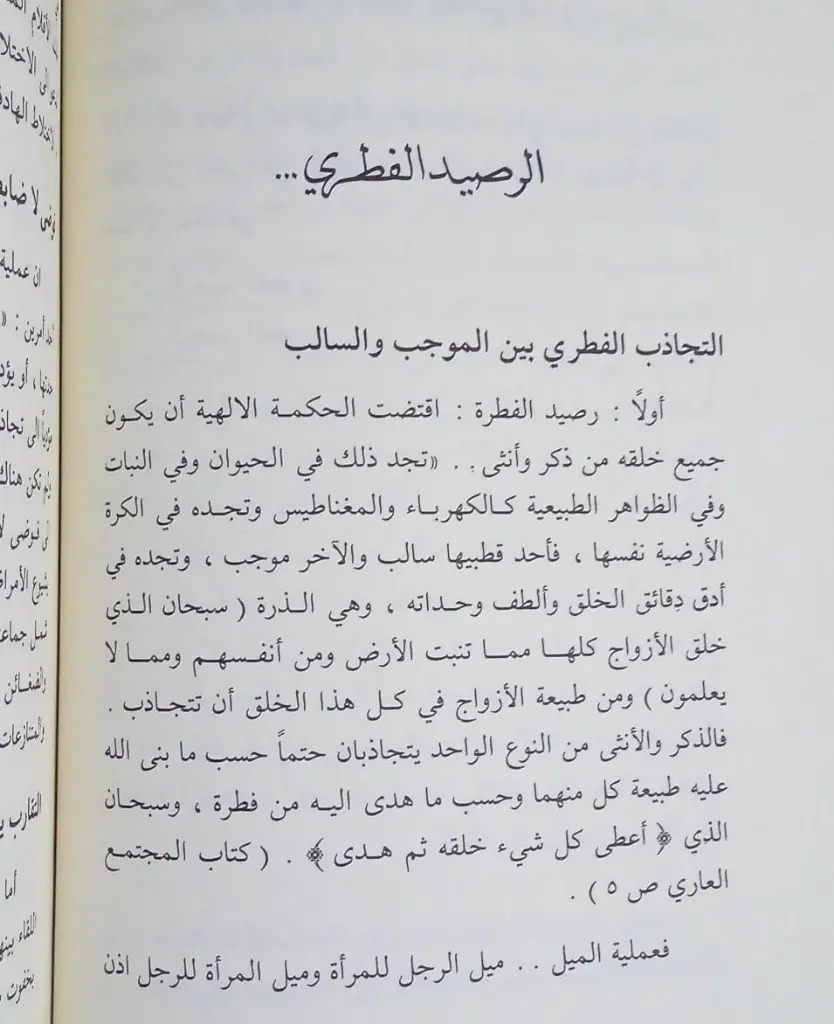 الرصيد الفطري ...
التجاذب الفطري بين الموجب والسالب
أولاً : رصيد الفطرة : اقتضت الحكمة الالهية أن يكون
جميع خلقه من ذكر وأنثى .. «تجد ذلك في الحيوان وفي النبات
وفي الظواهر الطبيعية كالكهرباء والمغناطيس وتجده في الكرة
الأرضية نفسها ، فأحد قطبيها سالب والآخر موجب ، وتجده في
أدق دِقائق الخلق وألطف وحداته ، وهي الذرة ( سبحان الذي
خلق الأزواج كلها مما تنبت الأرض ومن أنفسهم ومما لا
يعلمون ) ومن طبيعة الأزواج في كل هذا الخلق أن تتجاذب .
فالذكر والأنثى من النوع الواحد يتجاذبان حتماً حسب ما بنى الله
عليه طبيعة كل منهما وحسب ما هدى اليه من فطرة ، وسبحان
الذي ﴿ أعطى كل شيء خلقه ثم هدى ﴾ . ( كتاب المجتمع
العاري ص ٥ ) .
فعملية الميل .. ميل الرجل للمرأة وميل المرأة للرجل اذن